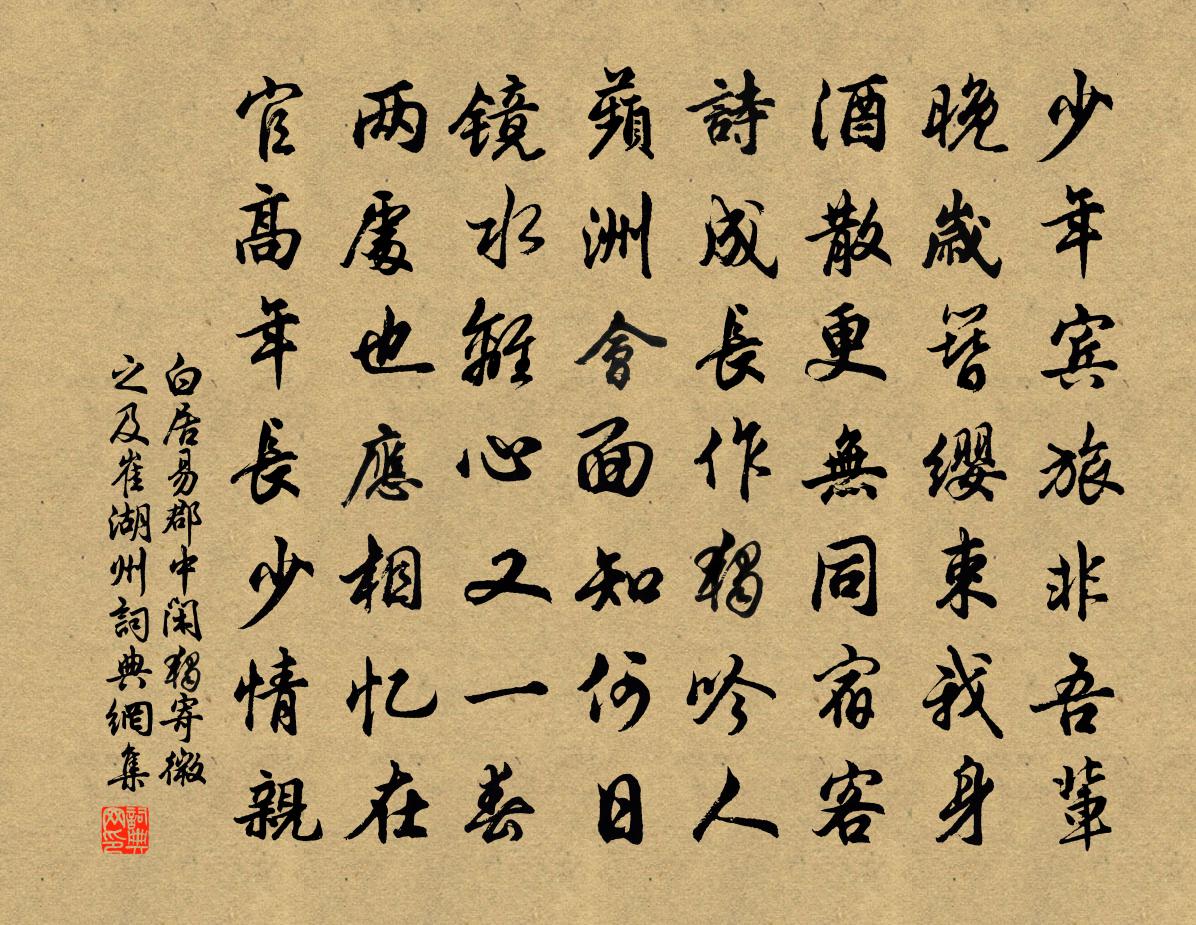 少年宾旅非吾輩
晚歲簪缨束我身
酒散更無同宿客
詩成長作獨吟人
蘋洲會面知何日
镜水離心又一春
两處也應相忆在
官髙年長少情親
白居易郡中閑獨寄微
之及崔湖州詞典網集
詞典网印